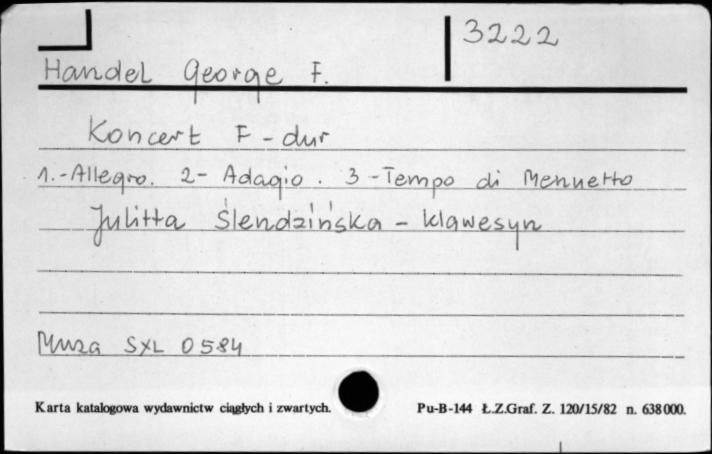 3222
Handel George F.
Koncert F-dur
1.-Allegro. 2- Adagio. 3-Tempo di Mennetto
Julitta Ślendzińska - klawesyn
Muza SXL 0584
Karta katalogowa wydawnictw ciągłych i zwartych. Pu-B-144 Ł.Z.Graf. Z. 120/15/82 n. 638000.